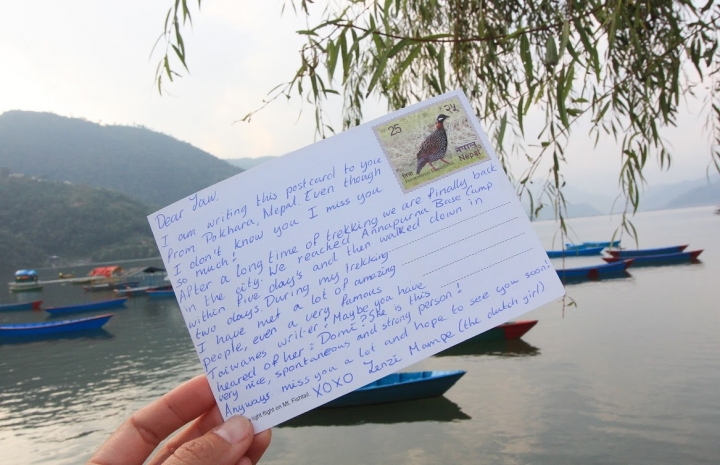 Dear Jaw.
I am writing this postcard to you
from Pokhara, Nepal. Even though
I don't know you I miss you
so much!
After a long time of trekking we are finally back
in the city. We reached Annapurna Base Camp
within five day's and then walked down in
two days. During my trekking
I have met a lot of amazing
people, even a very famous
Taiwanes writer! Maybe you have
heared of her: Domi? She is this
very nice, spontaneous and strong person!
Anyways miss you a lot and hope to see you soon!
XOXO Zenzi Mampe (the dutch girl)
light flight on Mt. Fishtail
25 २५
नेपाल
Nepal